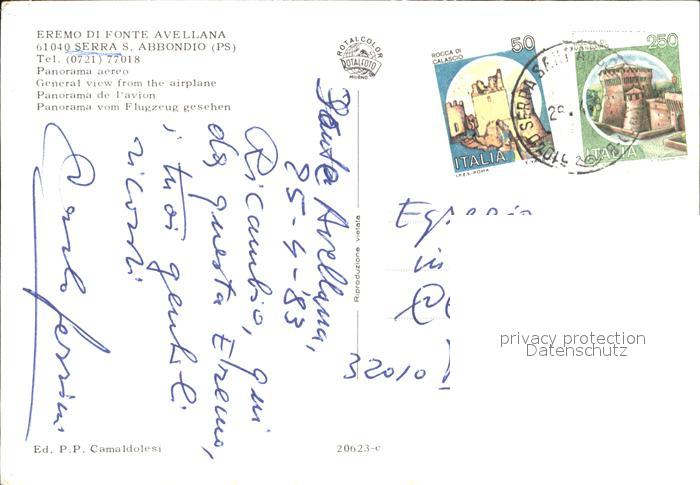 EREMO DI FONTE AVELLANA
61040 SERRA S. ABBONDIO (PS)
Tel. (0721) 77018
Panorama aereo
General view from the airplane
Panorama de l'avion
Panorama vom Flugzeug gesehen
ROTALCOLOR
ROTALFOTO
MILANO
ROCCA DI CALASCIO
50
ITALIA
I.P.Z.S. - ROMA
250
ITALIA
Fonte Avellana,
25-4-'83
Ricambio, qui
da questa Eremo,
i tuoi gentili
ricordi
Riproduzione vietata
in
32010
privacy protection
Datenschutz
Ed. P.P. Camaldolesi
20623-c